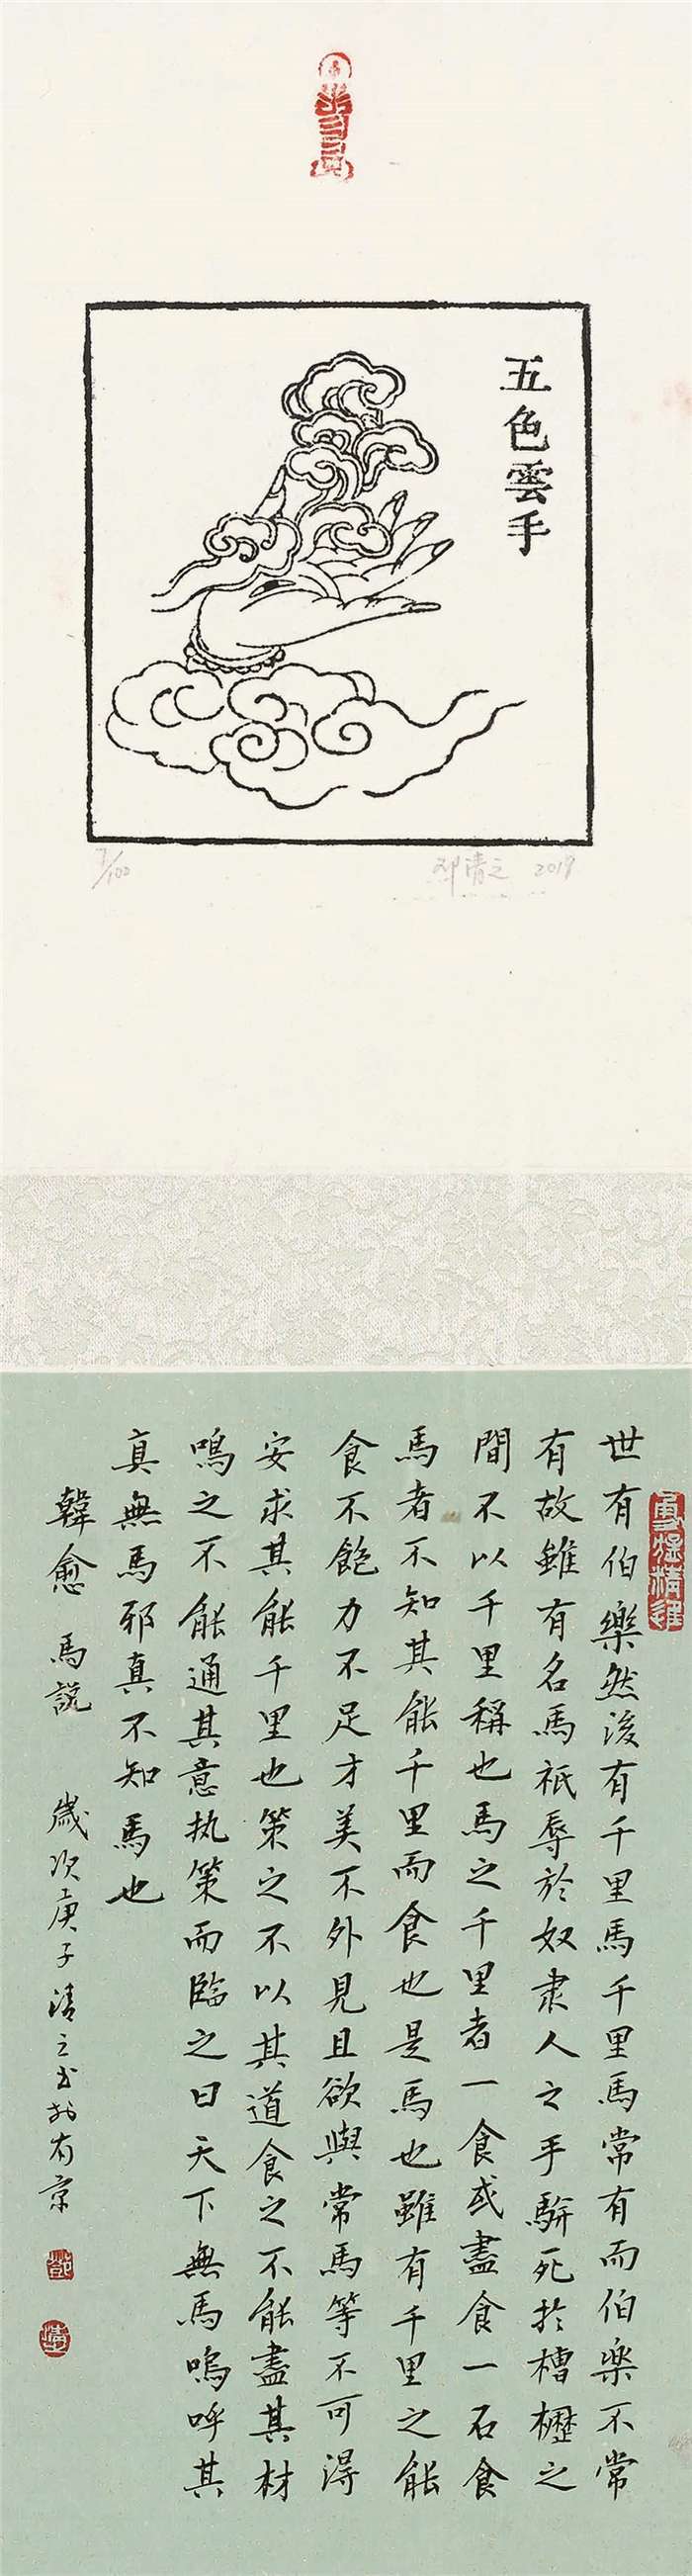 五色雲手
/100
邓清之 2019
勇猛精進
世有伯樂然後有千里馬千里馬常有而伯樂不常
有故雖有名馬祇辱於奴隶人之手駢死於槽櫪之
間不以千里稱也馬之千里者一食或盡食一石食
馬者不知其能千里而食也是馬也雖有千里之能
食不飽力不足才美不外見且欲與常馬等不可得
安求其能千里也策之不以其道食之不能盡其材
鳴之不能通其意执策而臨之曰天下無馬嗚呼其
真無馬邪真不知馬也
韓愈 馬説 歲次庚子清之書於京